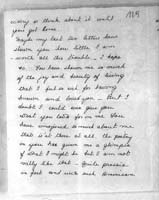 worry or think about it until
you get home.
Maybe my last two letters have
shown you how little I am
worth all this trouble. I hope
so. You have shown me so much
of the joy and beauty of living
that I feel so for having
known and loved you. But I
doubt I could ever give you
what you look for in me. You
have imagined so much about me
that isn't there at all. The poetry
in you has given me a glimpse
of what I might be but I am not
really like that. Quite prosaic
in fact and such